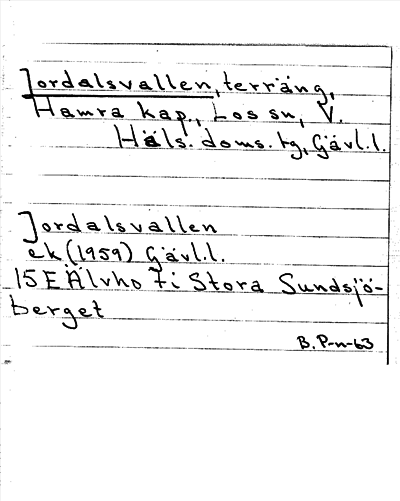 Jordalsvallen, terräng,
Hamra kap., Los sn, V.
Häls. doms. tg, Gävl.l.
Jordalsvallen
ek (1959) Gävl.l.
15E Älvho 7i Stora Sundsjö-
berget
B. P-n-63